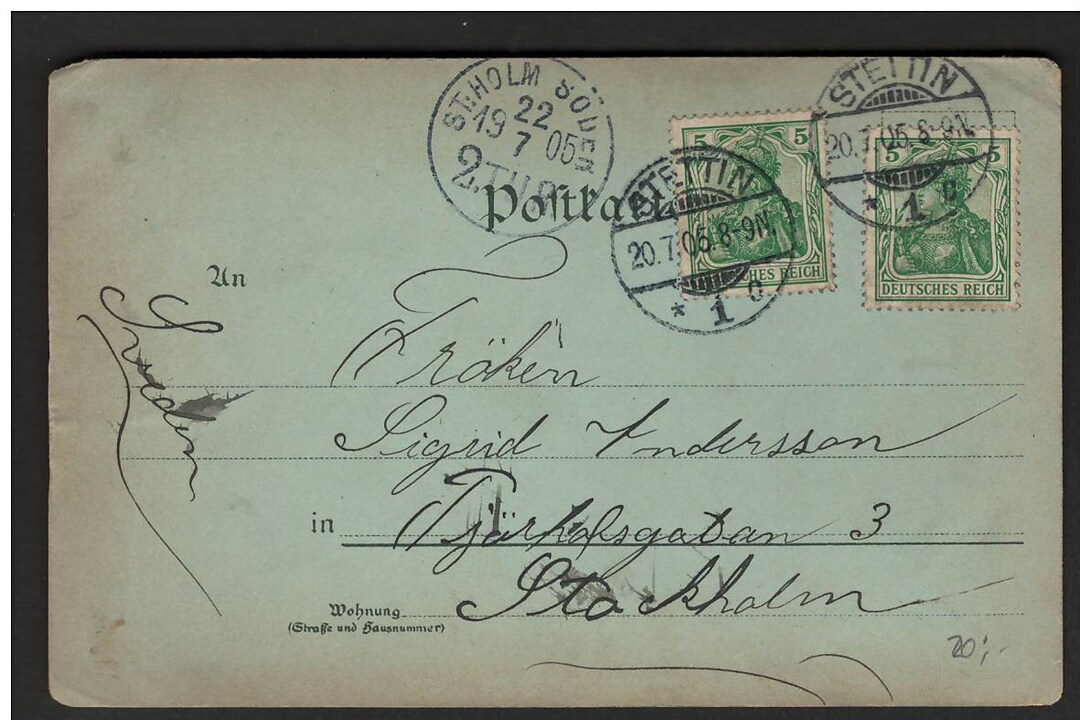 ST.HOLM SÖDER
22
19 7 05
2 TUR
STETTIN
20.7.05.8-9N.
* 1 c
STETTIN
20.7.05.8-9N.
* 1 c
5 5
DEUTSCHES REICH
5 5
DEUTSCHES REICH
Postkarte
An
Fröken
Sigrid Andersson
in
Stockholm
Wohnung
(Straße und Hausnummer)
20:-